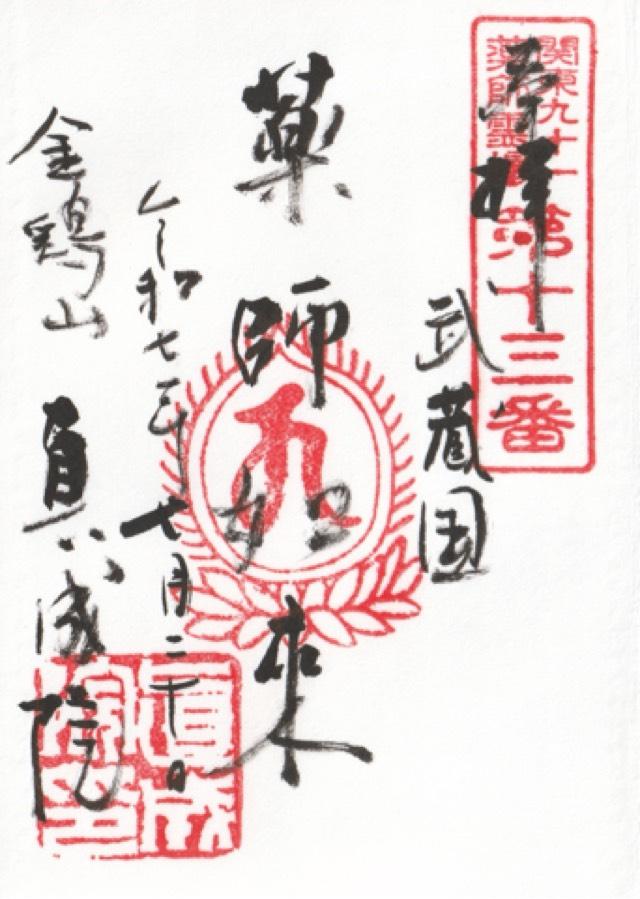 奉拝
関東九十一
薬師霊場
第十三番
武蔵国
薬師如来
令和七年七月二十日
金鶏山 真成院